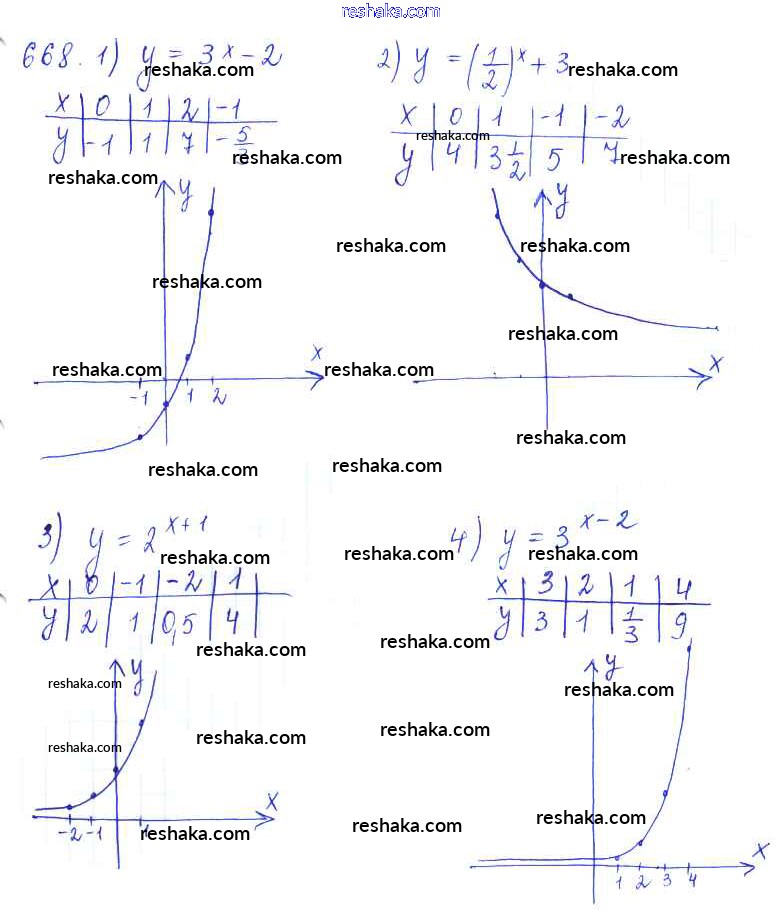 reshaka.com
668. 1) y = 3^x - 2
reshaka.com
x | 0 | 1 | 2 | -1
y | -1 | 1 | 7 | -5/3
reshaka.com
reshaka.com
y
reshaka.com
x
reshaka.com
-1 1 2
reshaka.com
2) y = (1/2)^x + 3
reshaka.com
x | 0 | 1 | -1 | -2
reshaka.com
y | 4 | 3 1/2 | 5 | 7
reshaka.com
y
reshaka.com
reshaka.com
reshaka.com
x
reshaka.com
reshaka.com
reshaka.com
3) y = 2^(x+1)
reshaka.com
x | 0 | -1 | -2 | 1
y | 2 | 1 | 0,5 | 4
reshaka.com
y
reshaka.com
reshaka.com
reshaka.com
x
-2 -1 1
reshaka.com
4) y = 3^(x-2)
reshaka.com
reshaka.com
x | 3 | 2 | 1 | 4
y | 3 | 1 | 1/3 | 9
reshaka.com
y
reshaka.com
reshaka.com
reshaka.com
reshaka.com
x
1 2 3 4